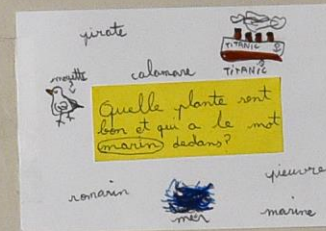 pirate
TITANIC
TITANIC
mouette
calamare
Quelle plante sent
bon et qui a le mot
marin dedans?
pieuvre
romarin
mer
marine